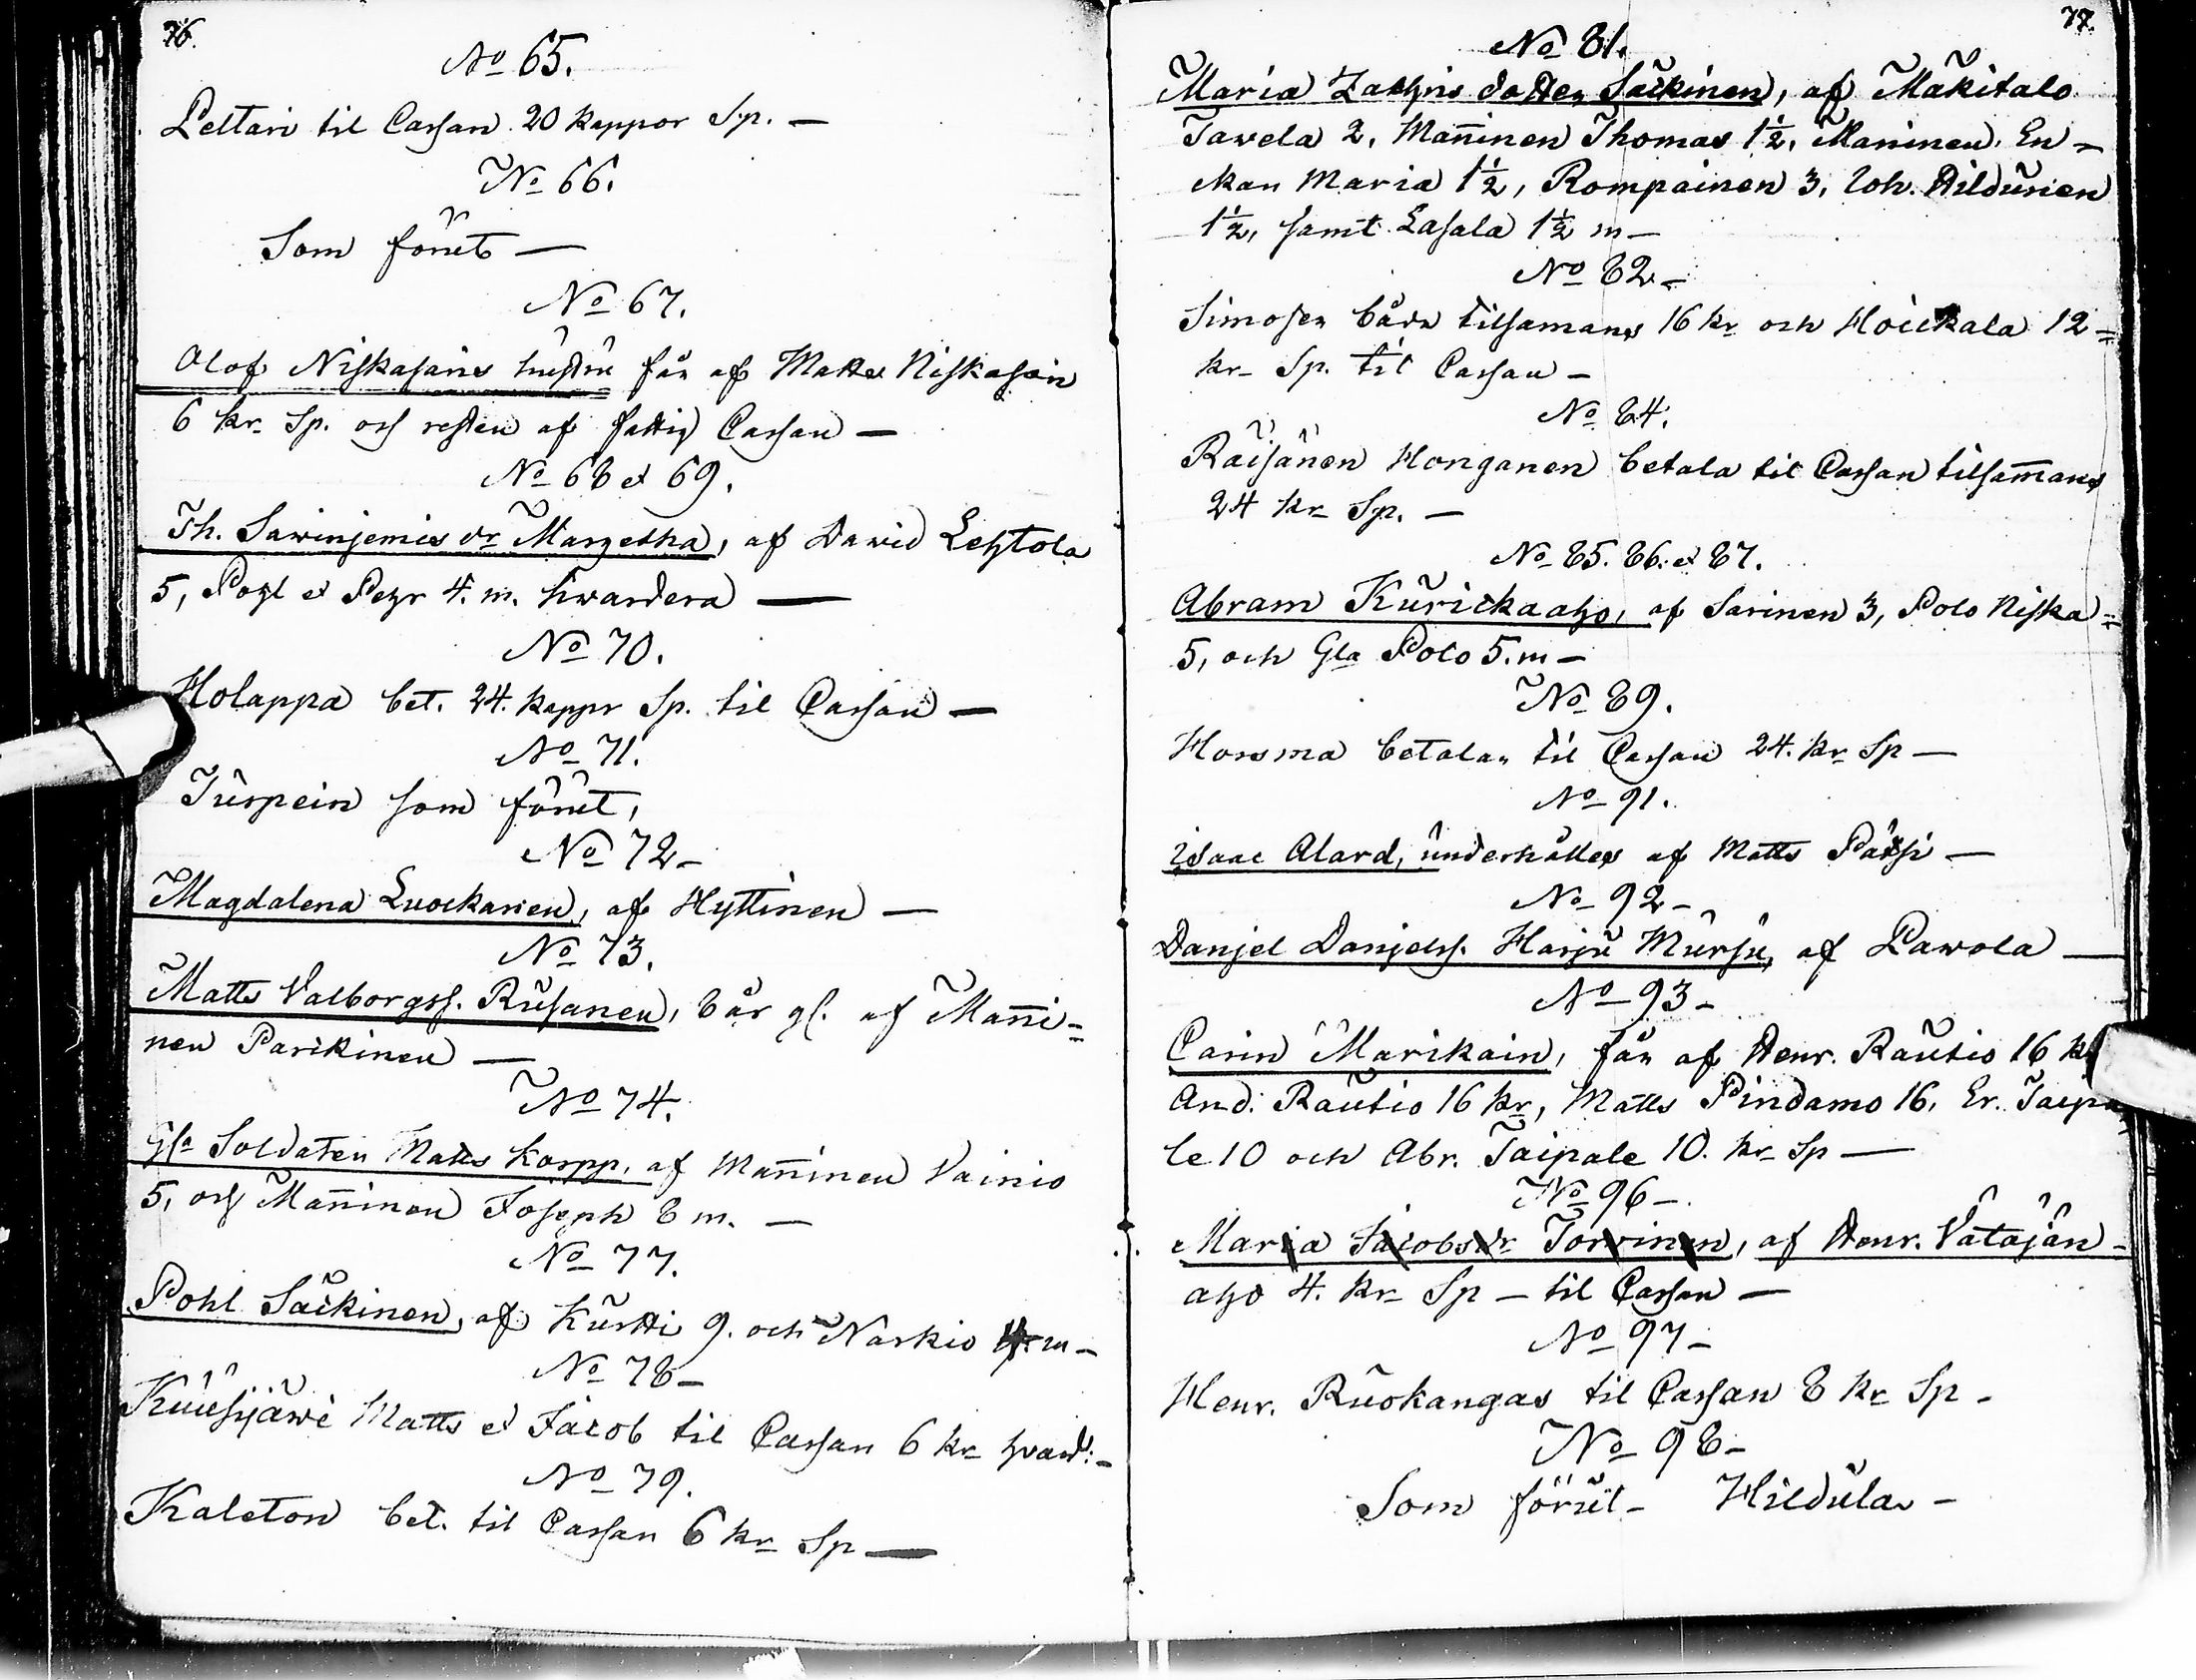 76.
No 65.
Lettari til Cassan 20 kappor Sp. —
No 66.
Som förut —
No 67.
Olof Niskasäns hustru får af Matts Niskasen
6 kr. Sp. och resten af fattig Cassan —
No 68 et 69.
Th. Sawinjemis dr Margetha, af David Lehtola
5, Pohl et Pehr 4. m. hwardera —
No 70.
Holappa bet. 24. kappr Sp. til Cassan —
No 71.
Juspein som förut,
No 72 —
Magdalena Luockanen, af Hyttinen —
No 73.
Matts Valborgss. Rusanen, 8 år gl. af Mañi=
nen Parikinen —
No 74.
Gla Soldaten Matts Korpp, af Mañinen Vainio
5, och Mañinen Joseph 8 m. —
No 77.
Pohl Säikinen, af Kurtti 9. och Narkio m —
No 78 —
Kuusijäwi Matts et Jacob til Cassan 6 kr hvard: —
No 79.
Kaleton bet. til Cassan 6 kr Sp —
77.
No 81.
Maria Zachris dotter Säikinen, af Mäkitalo
Tawela 2, Mañinen Thomas 1½, Maninen En —
kan Maria 1½, Rompainen 3, Joh. Hildunen
1½, samt Lasala 1½ m —
No 82 —
Simosen båda tilsamans 16 kr och Hoickala 12 =
kr Sp. til Cassan —
No 84.
Räisänen Honganen betala til Cassan tilsam̄ans
24 kr Sp. —
No 85. 86. et 87.
Abram Kurickaaho, af Sarinen 3, Polo Niska =
5, och Gla Polo 5. m —
No 89.
Horsma betalar til Cassan 24. kr Sp —
No 91.
Isaac Alard, underhålles af Matts —
No 92 —
Danjel Danjelss. Harju Mursu, af Pawola —
No 93 —
Carin Marikain, får af Henr. Rautio 16 kr
And. Rautio 16 kr, Matts Pindamo 16, Er. Taipa
le 10 och Abr. Taipale 10. kr Sp —
No 96 —
Maria Jacobsdr Torvinen, af Henr. Vätäjän —
aho 4. kr Sp — til Cassan —
No 97 —
Henr. Ruokangas til Cassan 8 kr Sp —
No 98 —
Som förut — Hildula —